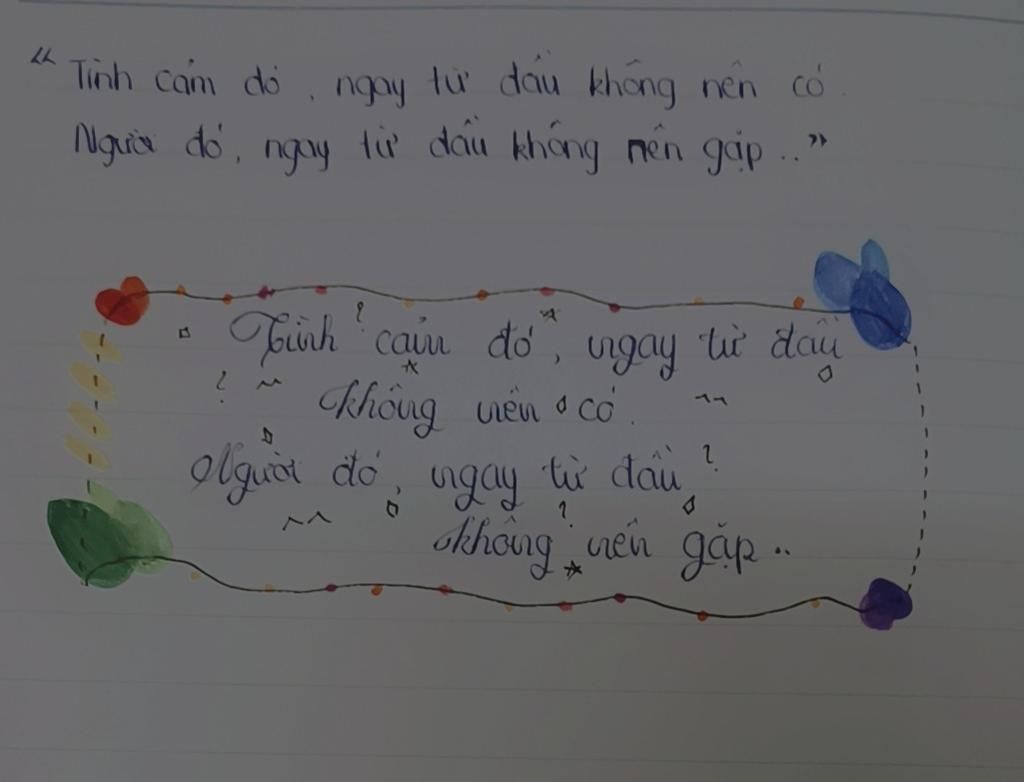 “ Tình cảm đó, ngay từ đầu không nên có.
Người đó, ngay từ đầu không nên gặp.. ”
Tình cảm đó, ngay từ đầu
không nên có.
Người đó, ngay từ đầu
không nên gặp..